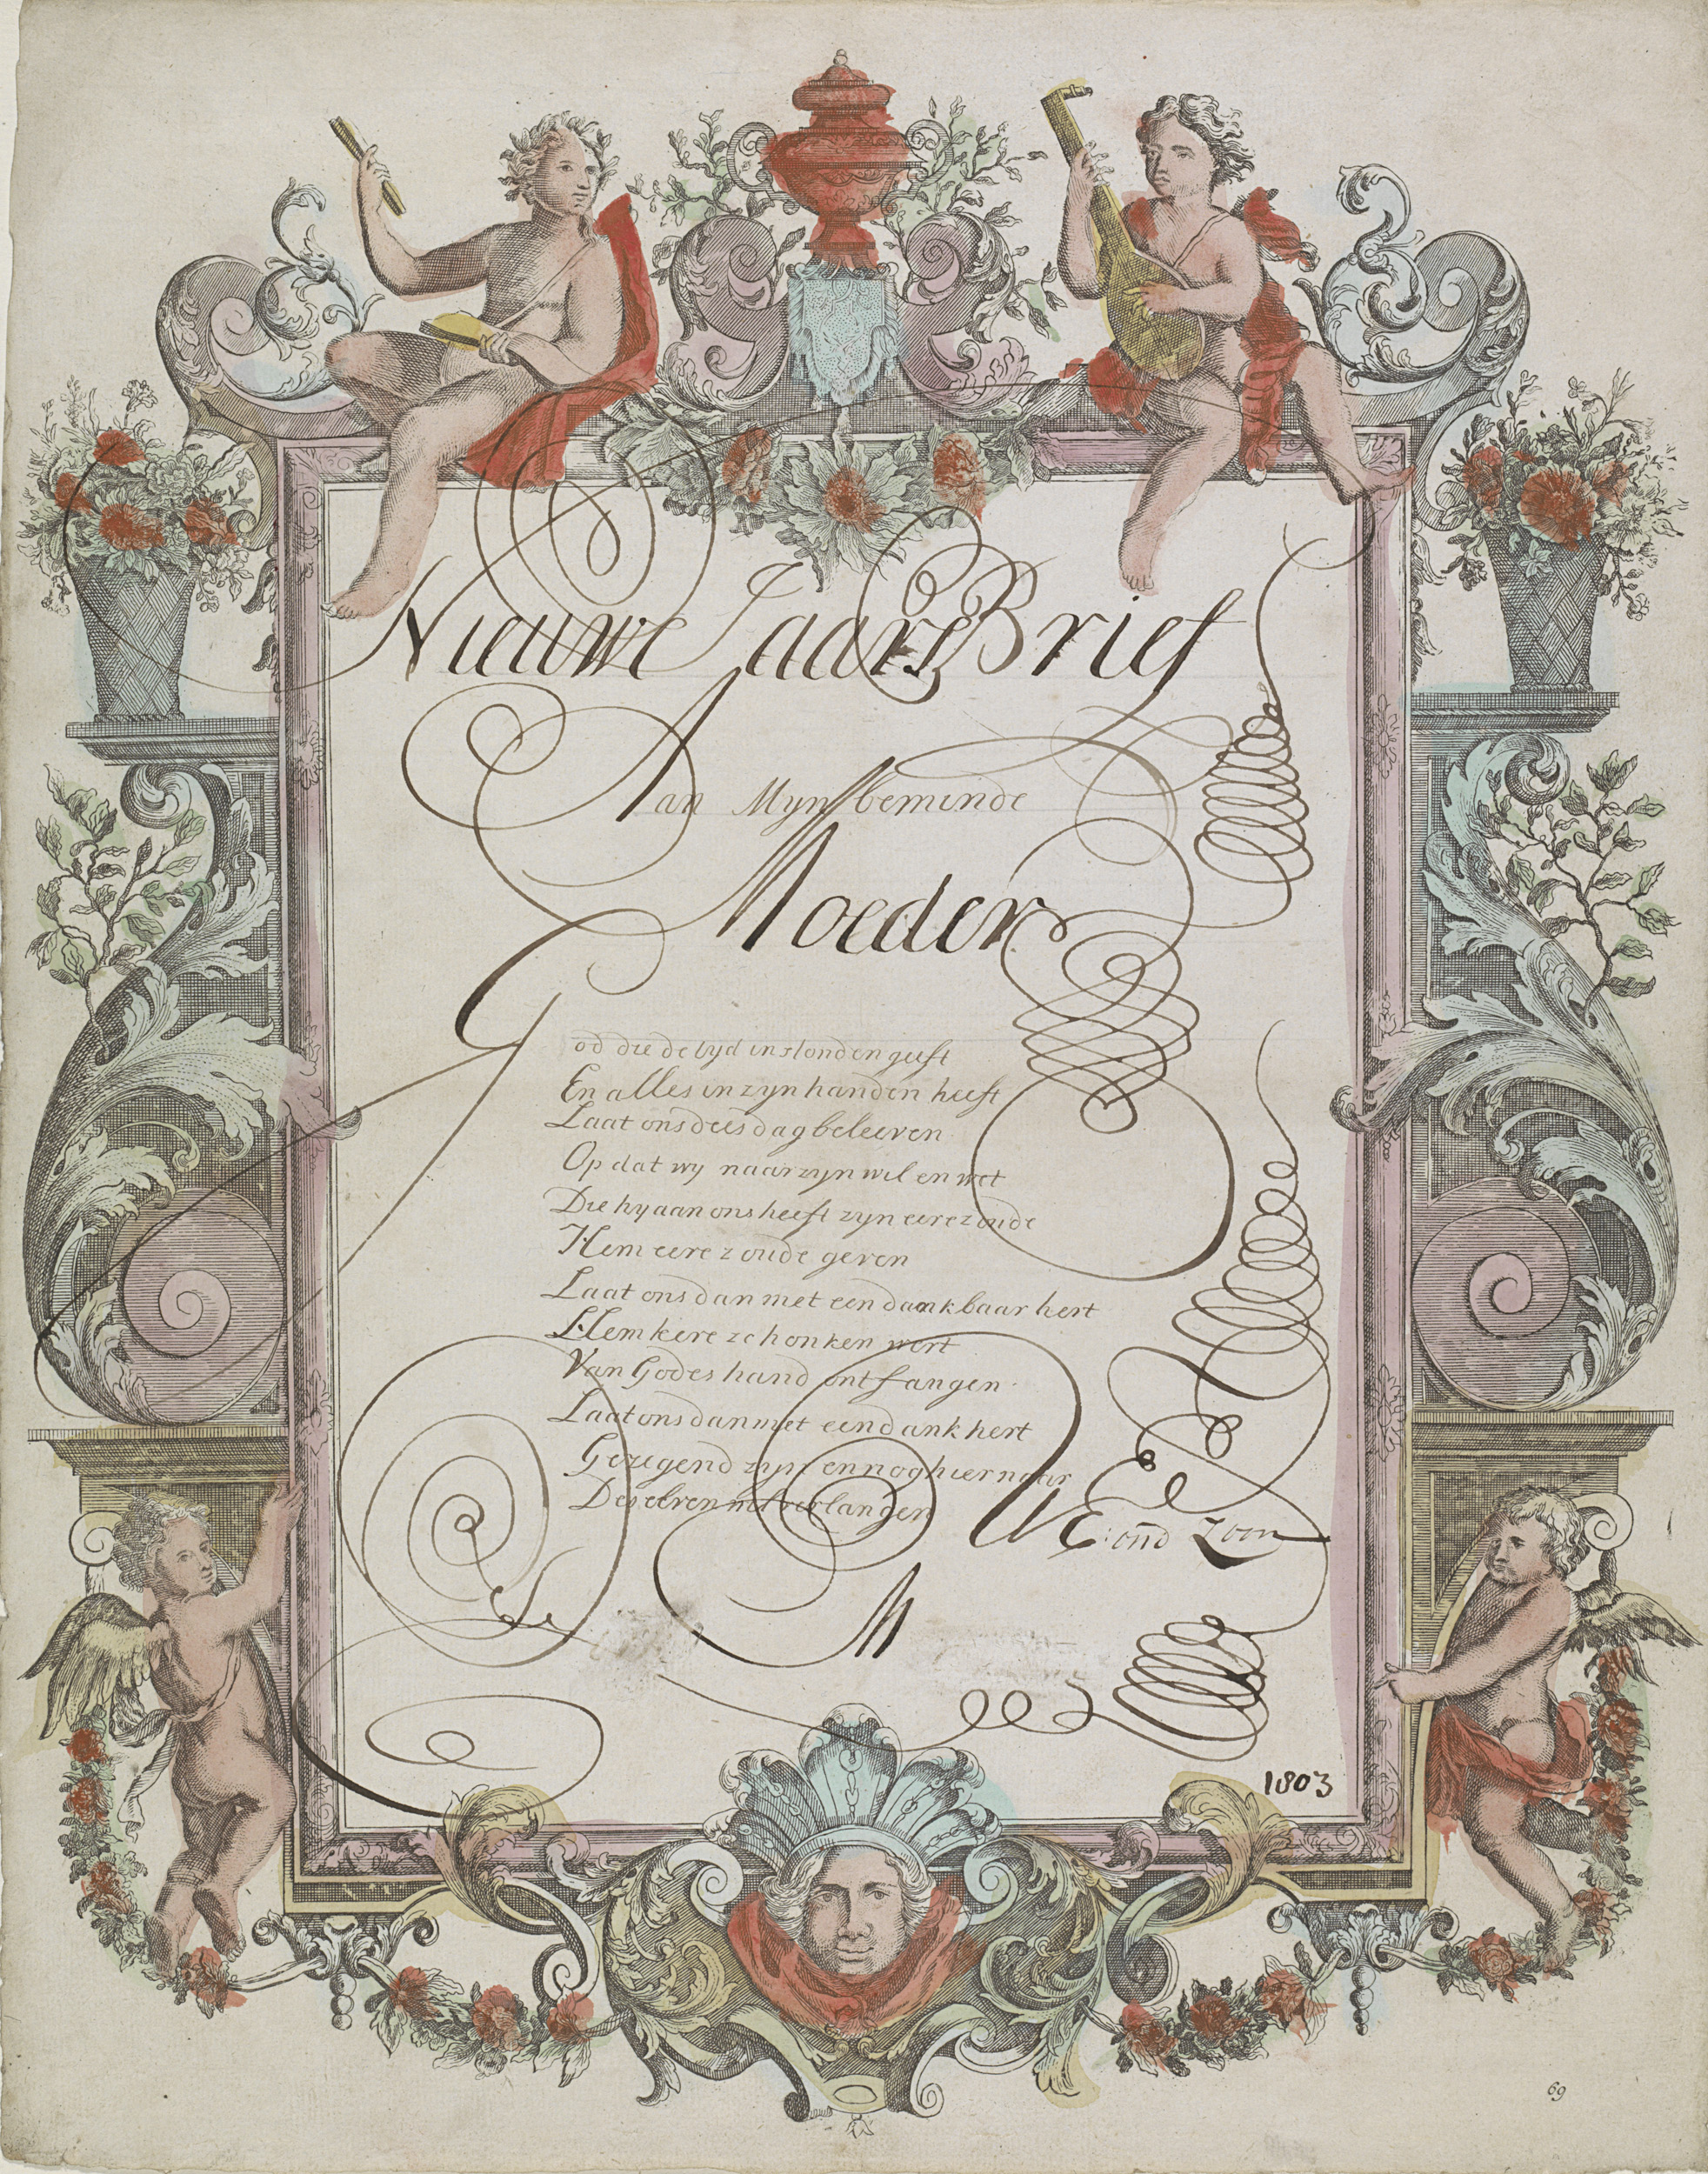 Nieuwe Jaars Brief
Aan Myn beminde
Moeder
God die de tyd in stonden geeft
En alles in zyn handen heeft
Laat ons dees dag beleeven
Op dat wy naar zyn wil en wet
Die hy aan ons heeft zyn eere zoude
Hem eere zoude geven
Laat ons dan met een dankbaar hert
Hem keere zchonken wert
Van Godes hand ontfangen
Laat ons dan met een dank hert
Gezegend zyn en nog hier naar
Des elven met verlangen
UE: ond Zoon
M
1803
69